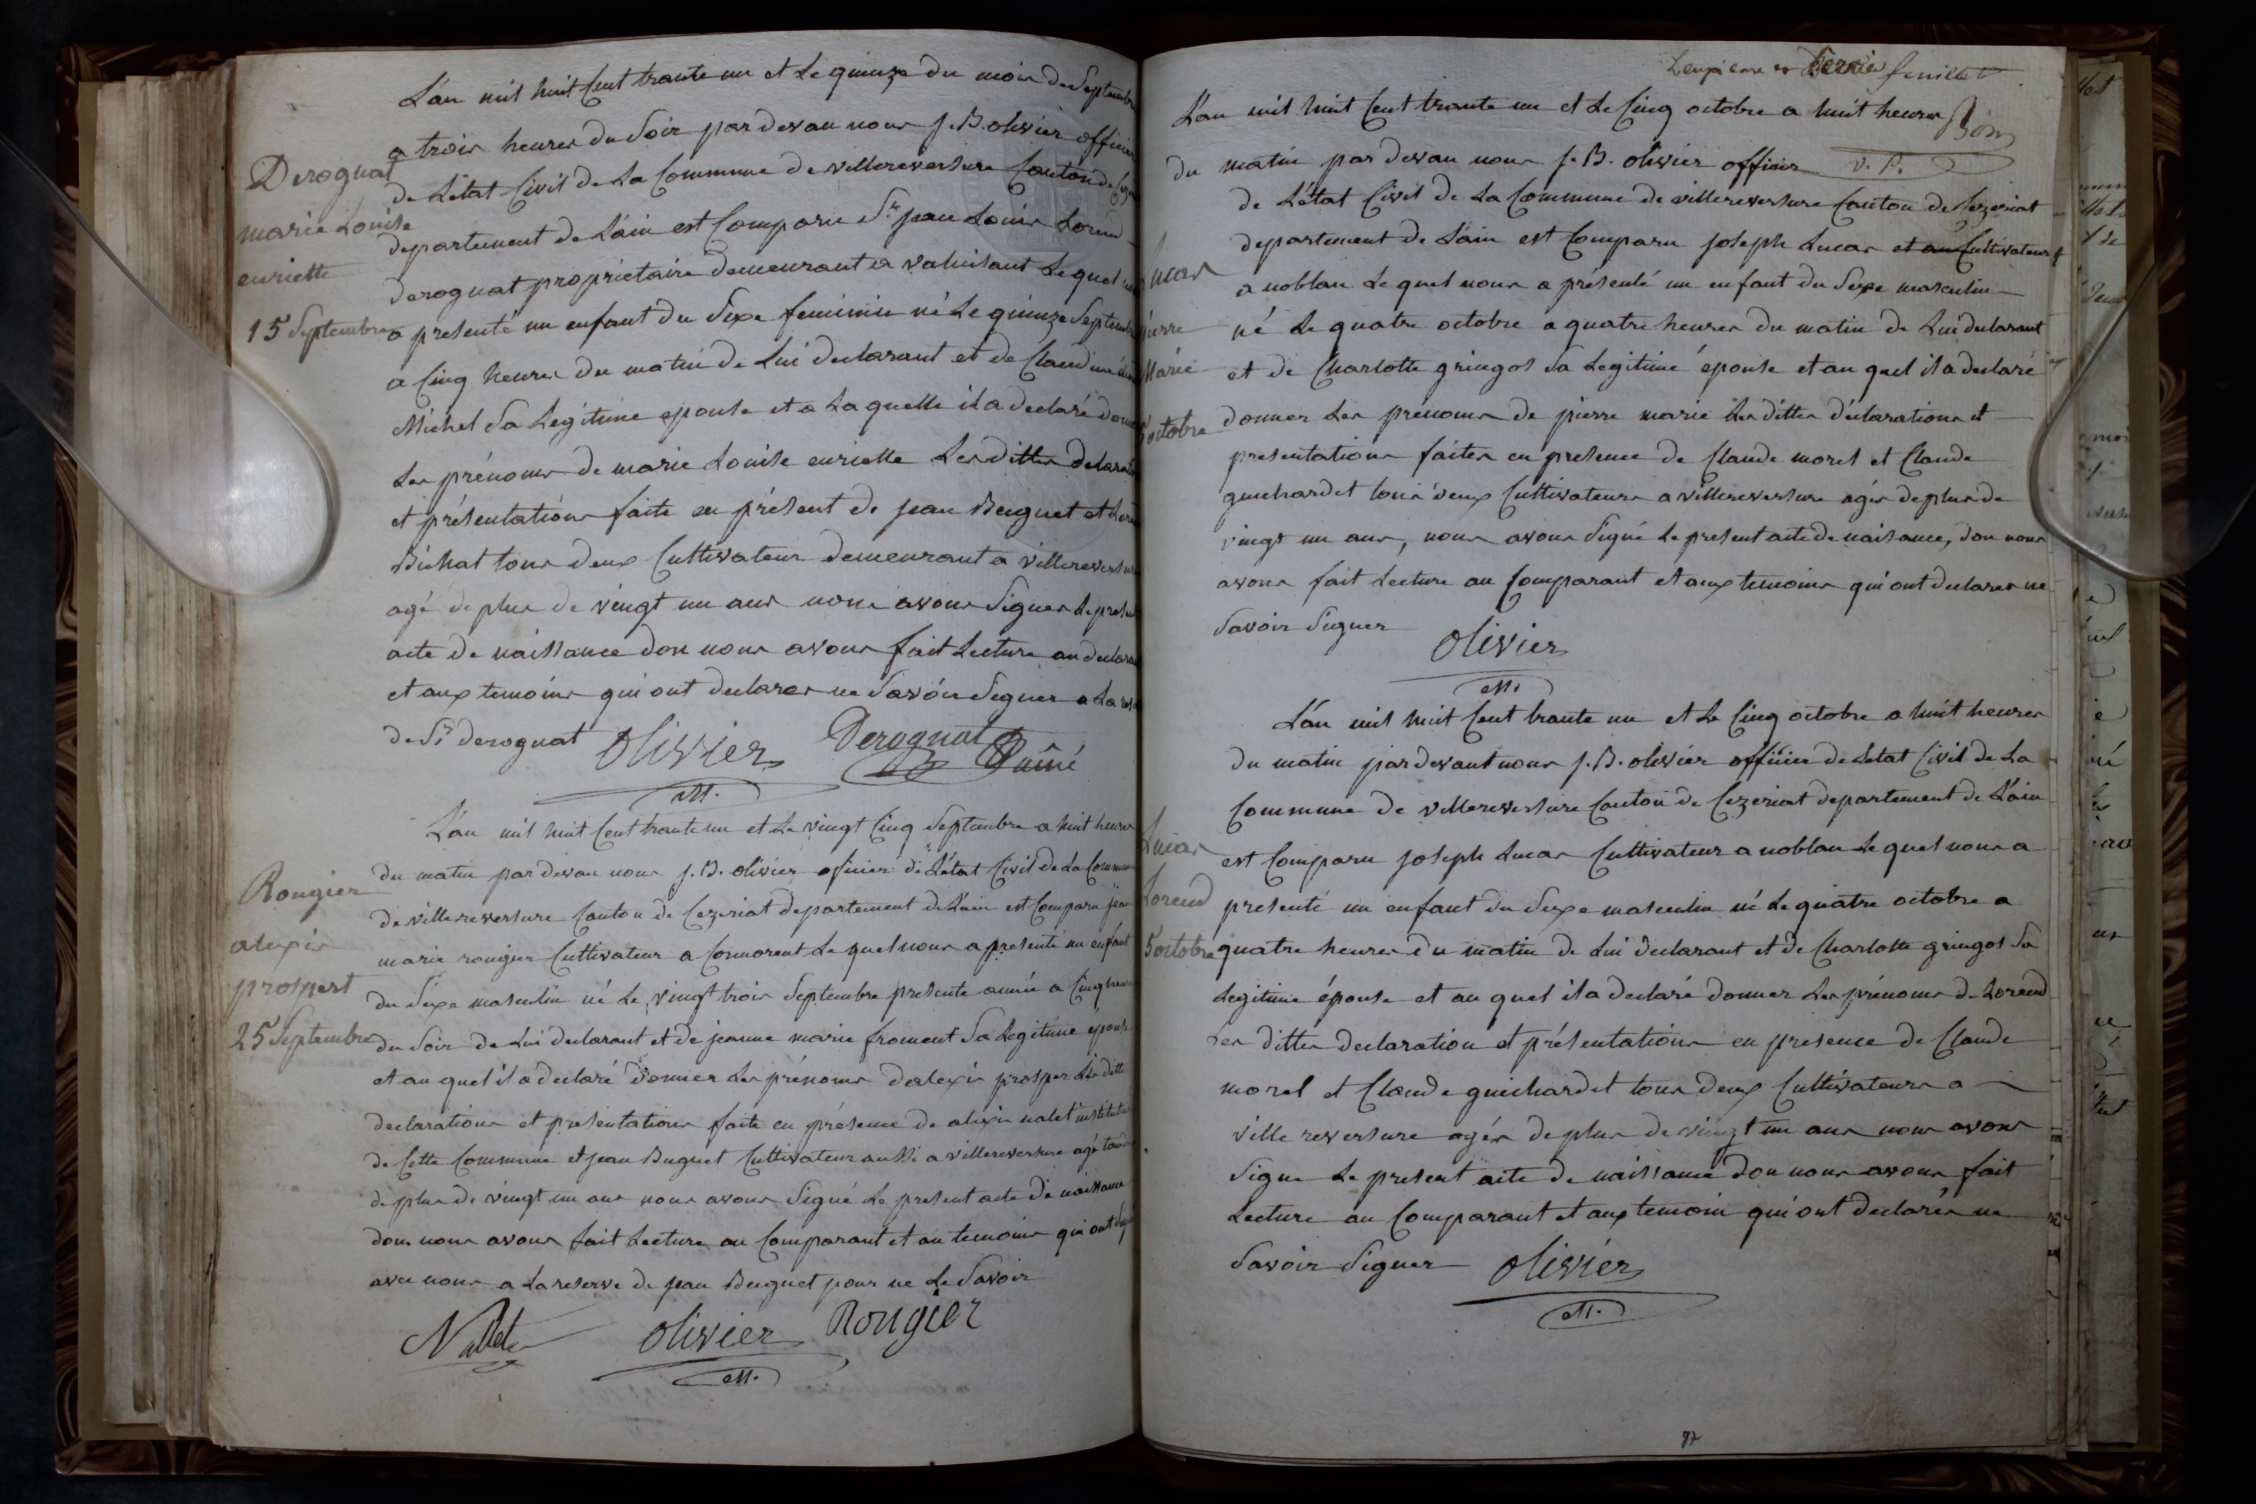 Derognat
marie Louise
enriette
15 Septembre
L'an mil huit Cent trante un et Le quinze du mois de Septembre
a trois heures du Soir par devan nous J. B. olivier officier
de L'état Civil de La Commune de villereversure Canton de
departement de L'ain est Comparu Sr jean Louis Lorend
derognat propriétaire demeurant a valuisant Le quel
a presenté un enfant du Sexe feminin né Le quinze Septembre
a Cinq heures du matin de Lui declarant et de Claudine
Michel Sa Legitime epouse et a La quelle il a declaré
Les prénoms de marie Louise enriette Les dittes
et présentations faite en présent de jean Buguet et
Bichat tous deux Cultivateur demeurant a villereversure
agé de plus de vingt un ans nous avons Signer Le present
acte de naissance don nous avons fait Lecture au
et aux temoins qui ont declarer ne Savoir Signer a La
de Sr derognat
Olivier Derognat Ainé
M.
Rougier
alexis
prospert
25 Septembre
L'an mil huit Cent trante un et Le vingt Cinq Septembre a huit heures
du matin par devan nous J. B. olivier oficier de L'état Civil de La Commune
de villereversure Canton de Cezeriat departement de L'ain est Comparu jean
marie rougier Cultivateur a Cormorent Le quel nous a presenté un enfant
du Sexe masculin né Le vingt trois Septembre presente année a Cinq heures
du Soir de Lui declarant et de jeanne marie froment Sa Legitime épouse
et au quel il a declaré donner Les prénoms d'alexis prosper Les ditte
declarations et presentations faite en présence de alexis nalet
de Cette Commune et jean Buguet Cultivateur aussi a villereversure agé
de plus de vingt un ans nous avons Signé Le present acte de naissance
don nous avons fait Lecture au Comparant et au temoins qui ont
avec nous a La reserve de jean Buguet pour ne Le Savoir
Nallet Olivier Rougier
M.
dernier feuillet
v. P.
Lucas
pierre
Marie
5 octobre
L'an mil huit Cent trante un et Le Cinq octobre a huit heures
du matin par devan nous J. B. olivier officier
de L'état Civil de La Commune de villereversure Canton de Cezeriat
departement de L'ain est Comparu joseph Lucas et au Cultivateur
a noblan Le quel nous a présenté un enfant du Sexe masculin
né Le quatre octobre a quatre heures du matin de Lui declarant
et de Charlotte gringos Sa Legitime épouse et au quel il a declaré
donner Les prénoms de pierre marie Les dittes déclarations et
presentations faites en presence de Claude morel et Claude
guichardet tous deux Cultivateurs a villereversure agés de plus de
vingt un ans, nous avons Signé Le present acte de naissance, don nous
avons fait Lecture au Comparant et aux temoins qui ont declarer ne
Savoir Signer
Olivier
M.
Lucas
Lorend
5 octobre
L'an mil huit Cent trante un et Le Cinq octobre a huit heures
du matin par devant nous J. B. olivier officier de L'etat Civil de La
Commune de villereversure Canton de Cezeriat departement de L'ain
est Comparu joseph Lucas Cultivateur a noblan Le quel nous a
presenté un enfant du Sexe masculin né Le quatre octobre a
quatre heures du matin de Lui declarant et de Charlotte gringos Sa
Legitime épouse et au quel il a declaré donner Les prénoms de Lorend
Les dittes declaration et présentations en presence de Claude
morel et Claude guichardet tous deux Cultivateurs a
ville reversure agés de plus de vingt un ans nous avons
Signe Le present acte de naissance don nous avons fait
Lecture au Comparant et aux temoin qui ont declarés ne
Savoir Signer
Olivier
M.